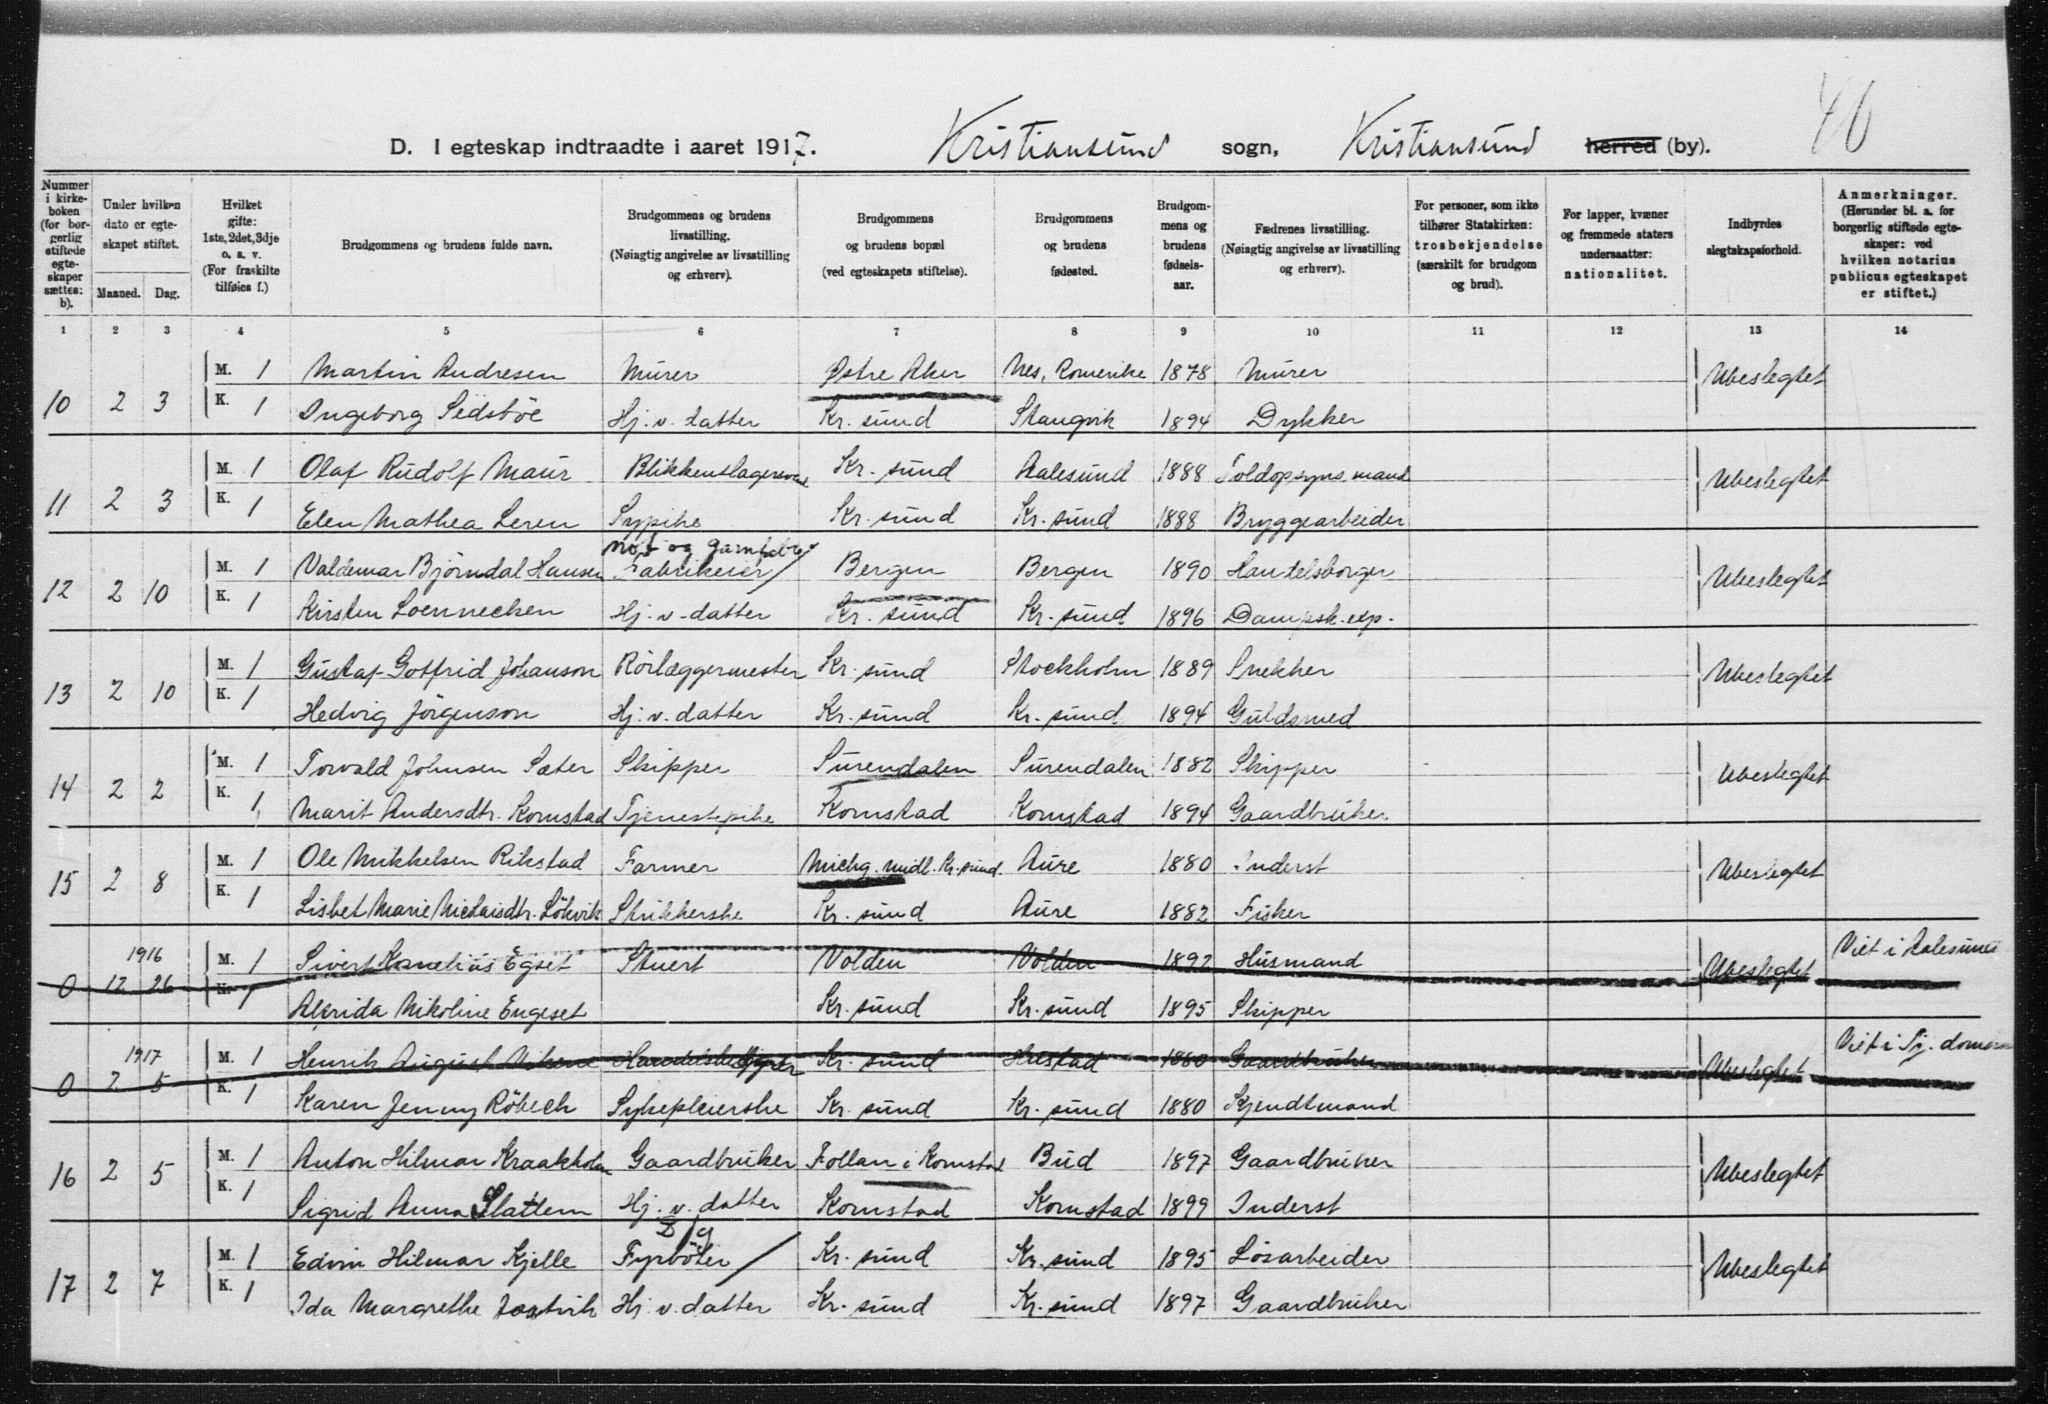 46
D. I egteskap indtraadte i aaret 1917. Kristiansund sogn, Kristiansund herred (by).
Nummer i kirkeboken (for borgerlig stiftede egteskaper sættes: b).
Under hvilken dato er egteskapet stiftet.
Maaned. Dag.
Hvilket gifte: 1ste, 2det, 3dje o. s. v. (For fraskilte tilføies f.)
Brudgommens og brudens fulde navn.
Brudgommens og brudens livsstilling. (Nøiagtig angivelse av livsstilling og erhverv).
Brudgommens og brudens bopæl (ved egteskapets stiftelse).
Brudgommens og brudens fødested.
Brudgommens og brudens fødselsaar.
Fædrenes livsstilling. (Nøiagtig angivelse av livsstilling og erhverv).
For personer, som ikke tilhører Statskirken: trosbekjendelse (særskilt for brudgom og brud).
For lapper, kvæner og fremmede staters undersaatter: nationalitet.
Indbyrdes slegtskapsforhold.
Anmerkninger. (Herunder bl. a. for borgerlig stiftede egteskaper: ved hvilken notarius publicus egteskapet er stiftet.)
1 2 3 4 5 6 7 8 9 10 11 12 13 14
M. 1 Martin Andresen Murer Østre Aker Nes, Romerike 1878 Murer
10 2 3 Ubeslegtet
K. 1 Ingeborg Settsbøe Hj. v. datter Kr. sund Stangvik 1894 Dykker
M. 1 Olaf Rudolf Maur Blikkenslagersvend Kr. sund Aalesund 1888 Toldopsyns mand
11 2 3 Ubeslegtet
K. 1 Elen Mathea Leren Sypike Kr. sund Kr. sund 1888 Bryggearbeider
not og garnfabr.
M. 1 Valdemar Bjørndal Hansen Fabrikeier Bergen Bergen 1890 Handelsborger
12 2 10 Ubeslegtet
K. 1 Kirsten Loennecken Hj. v. datter Kr. sund Kr. sund 1896 Dampsk. exp.
M. 1 Gustaf Gotfrid Johanson Rörlæggermester Kr. sund Stockholm 1889 Snekker
13 2 10 Ubeslegtet
K. 1 Hedvig Jörgenson Hj. v. datter Kr. sund Kr. sund 1894 Guldsmed
M. 1 Torvald Johnsen Sæter Skipper Surendalen Surendalen 1882 Skipper
14 2 2 Ubeslegtet
K. 1 Marit Andersdtr. Kornstad Tjenestepike Kornstad Kornstad 1894 Gaardbruker
M. 1 Ole Mikkelsen Rikstad Farmer Michg. midl. Kr. sund. Aure 1880 Inderst
15 2 8 Ubeslegtet
K. 1 Lisbet Marie Nicolaisdtr. Lökvik Strikkerske Kr. sund Aure 1882 Fisker
1916
M. 1 Sivert Kornelius Egset Stuert Volden Volden 1892 Husmand Viet i Aalesund
0 12 26 Ubeslegtet
K. 1 Alfrida Nikoline Engeset Kr. sund Kr. sund 1895 Skipper
1917
M. 1 Henrik August Kr. sund 1880 Gaardbruker Viet i
0 2 5 Ubeslegtet
K. 1 Karen Jenny Röbech Sykepleierske Kr. sund Kr. sund 1880 Kjendtmand
M. 1 Anton Hilmar Kraakholm Gaardbruker Follan i Kornstad Bud 1897 Gaardbruker
16 2 5 Ubeslegtet
K. 1 Sigrid Anna Slatlem Hj. v. datter Kornstad Kornstad 1899 Inderst
M. 1 Edvin Hilmar Kjelle Fyrböter Kr. sund Kr. sund 1895 Lösarbeider
17 2 7 Ubeslegtet
K. 1 Ida Margrethe Hj. v. datter Kr. sund Kr. sund 1897 Gaardbruker